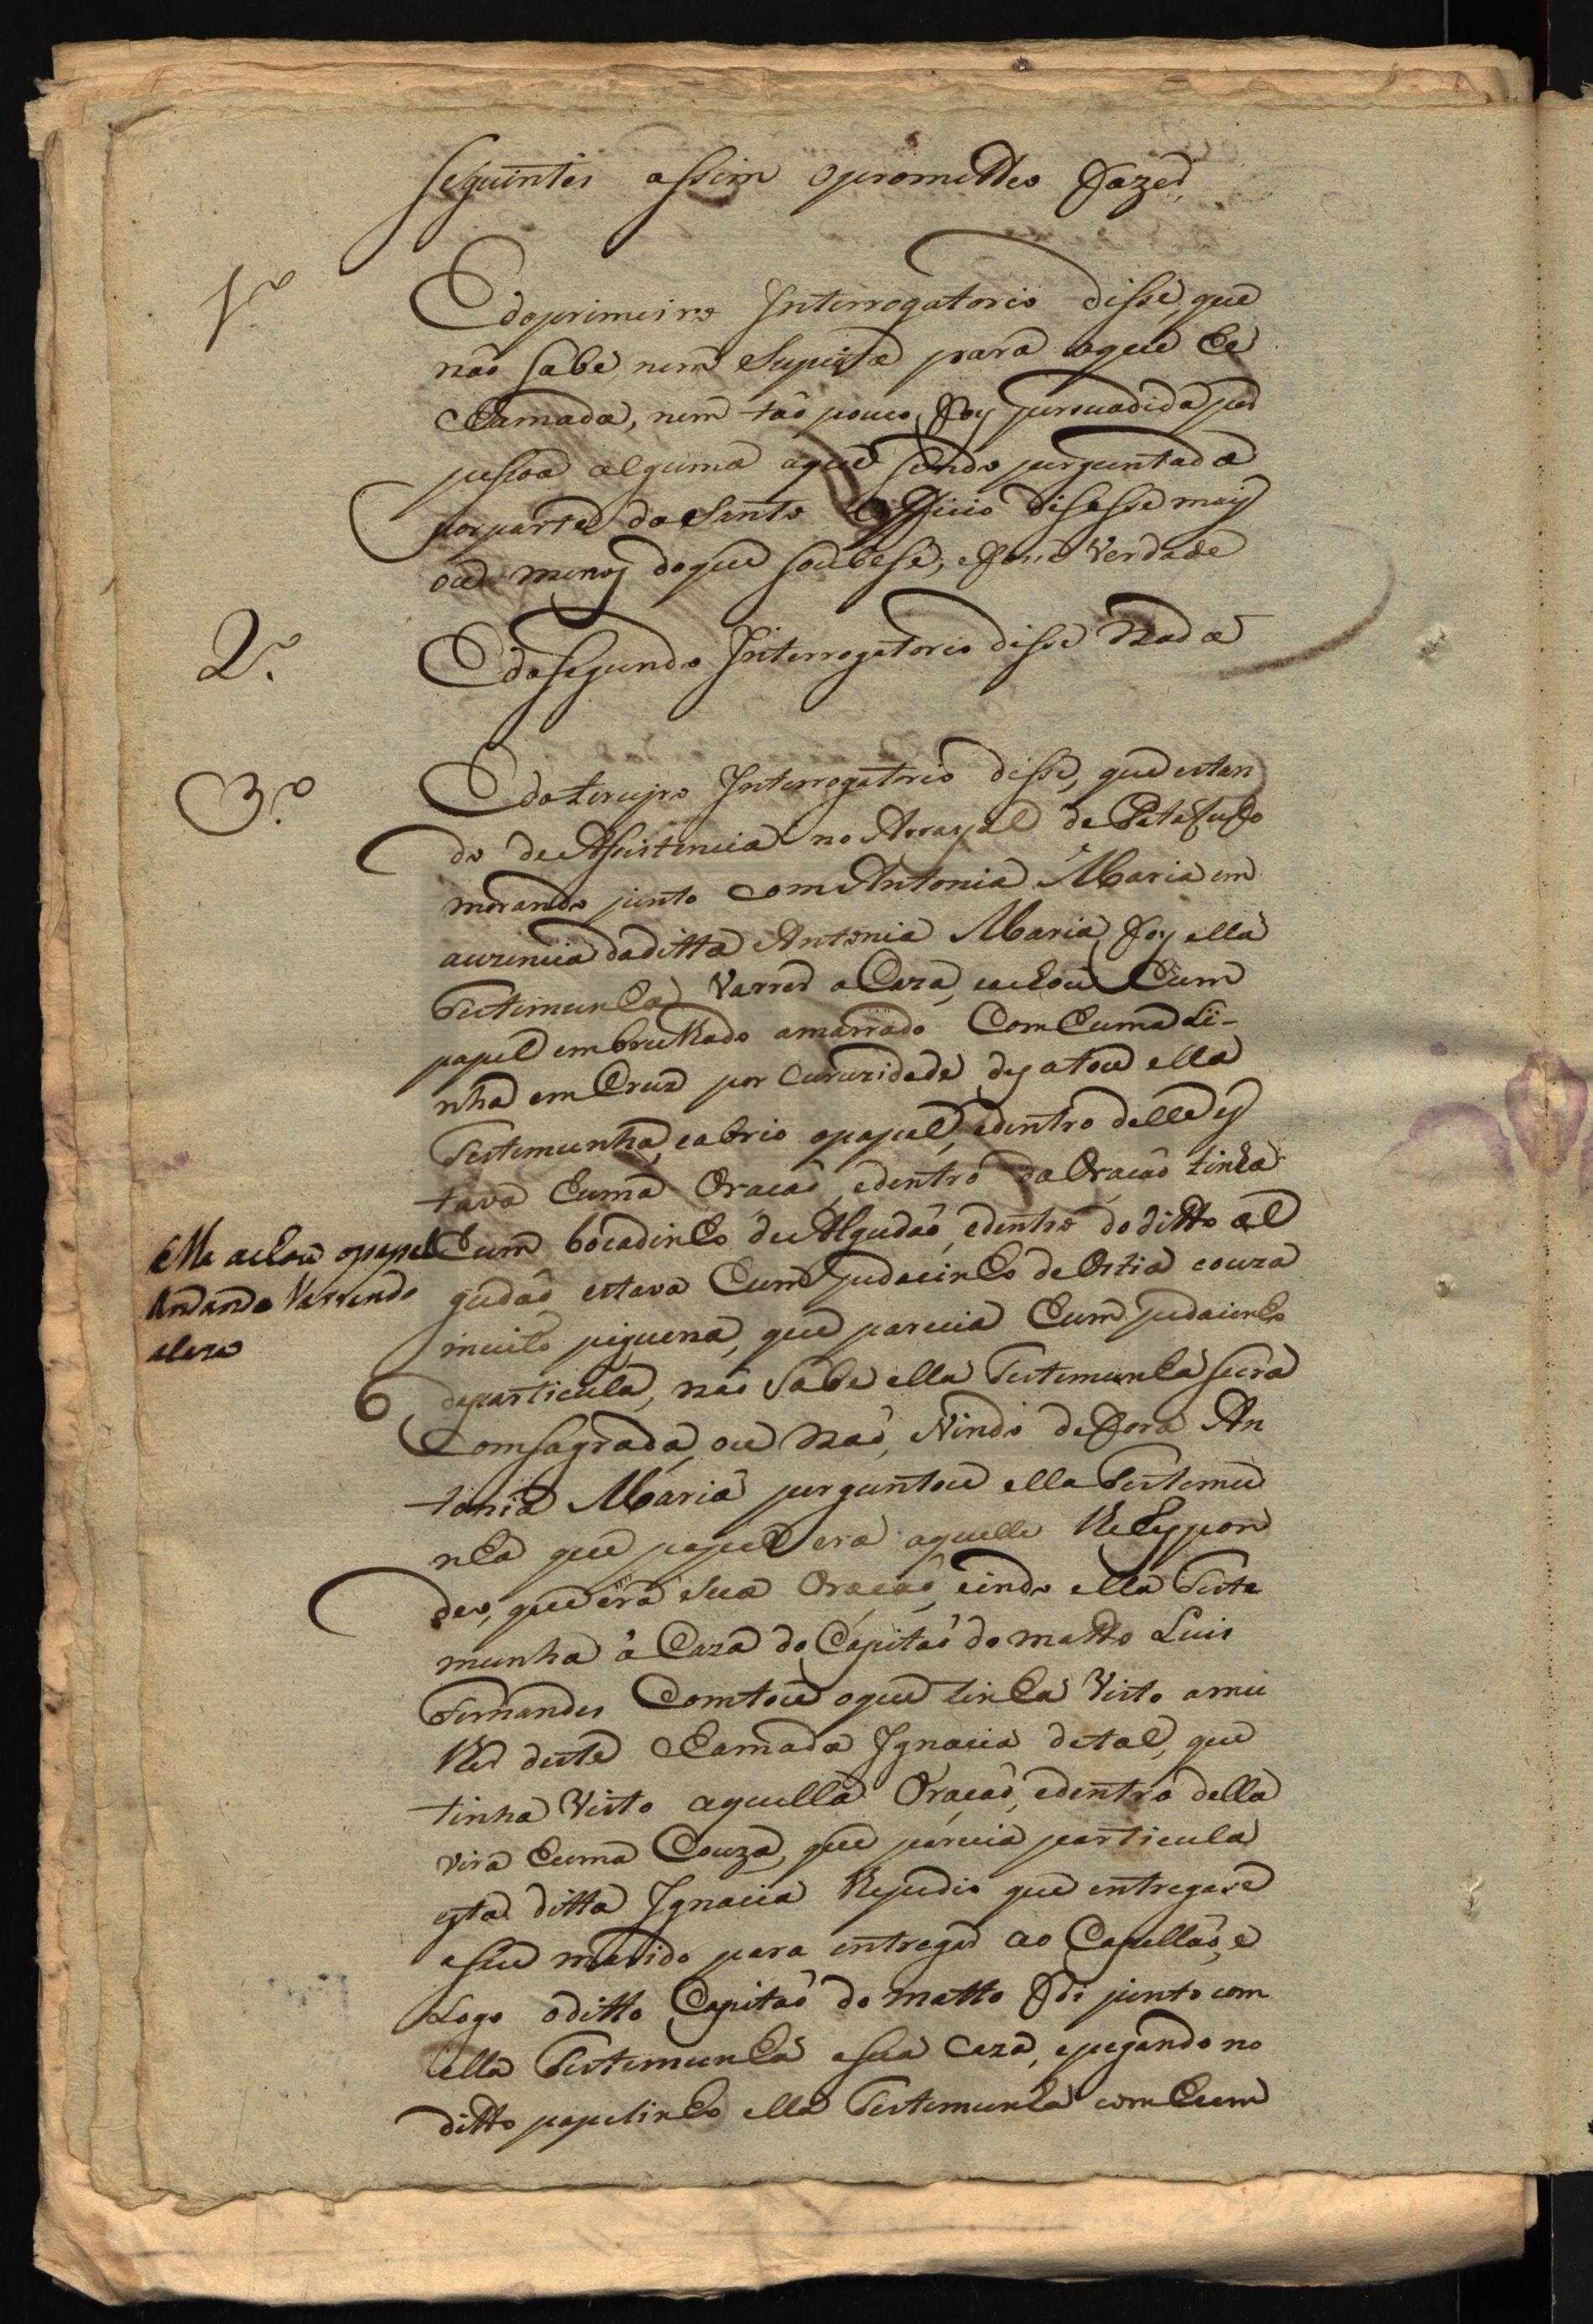 seguintes assim o prometteo fazer,
1º
E do primeiro Interrogatorio disse, que
não sabe, nem Supeita para o que he
chamada, nem tão pouco foy persuadida por
pessoa alguma a que sendo perguntada
por parte do Santo Officio disesse mais
ou menos do que soubese, e fose verdade
2º
E do segundo Interrogatorio disse Nada
3º
E do terceyro Interrogatorio disse, que estan
do de Assistencia no Arrayal de
morando junto com Antonia Maria em
auzencia da ditta Antonia Maria foy ella
Testemunha Varrer a Caza, e achou hum
papel embrulhado amarrado Com huma Li-
nha em Cruz por Curuzidade desatou ella
Testemunha, e abrio o papel, e dentro delle es
tava huma Oração, e dentro da Oração tinha
hum bocadinho de Algudão, e dentro do ditto al
gudão estava hum pedacinho de Ostia couza
muito piquena, que parecia hum pedacinho
de particula, não sabe ella Testemunha se era
Comsagrada, ou Não, Vindo de fora An
tonia Maria perguntou ella Testemu
nha que papel era aquelle Respon
deo, que era sua Oração, e indo ella Teste
munha á Caza do Capitão do matto Luis
Fernandes Comtou o que tinha Visto a mu
lher deste chamada Ignacia de tal, que
tinha Visto aquella Oração, e dentro della
vira huma Couza, que parecia particula
esta ditta Ignacia lhe pedio que entregase
a seu marido para entregar ao Capellão, e
Logo o ditto Capitão do matto foi junto com
ella Testemunha a sua caza, e pegando no
ditto papelinho ella Testemunha com hum
Ella achou o papel
Andando Varrendo
a Caza